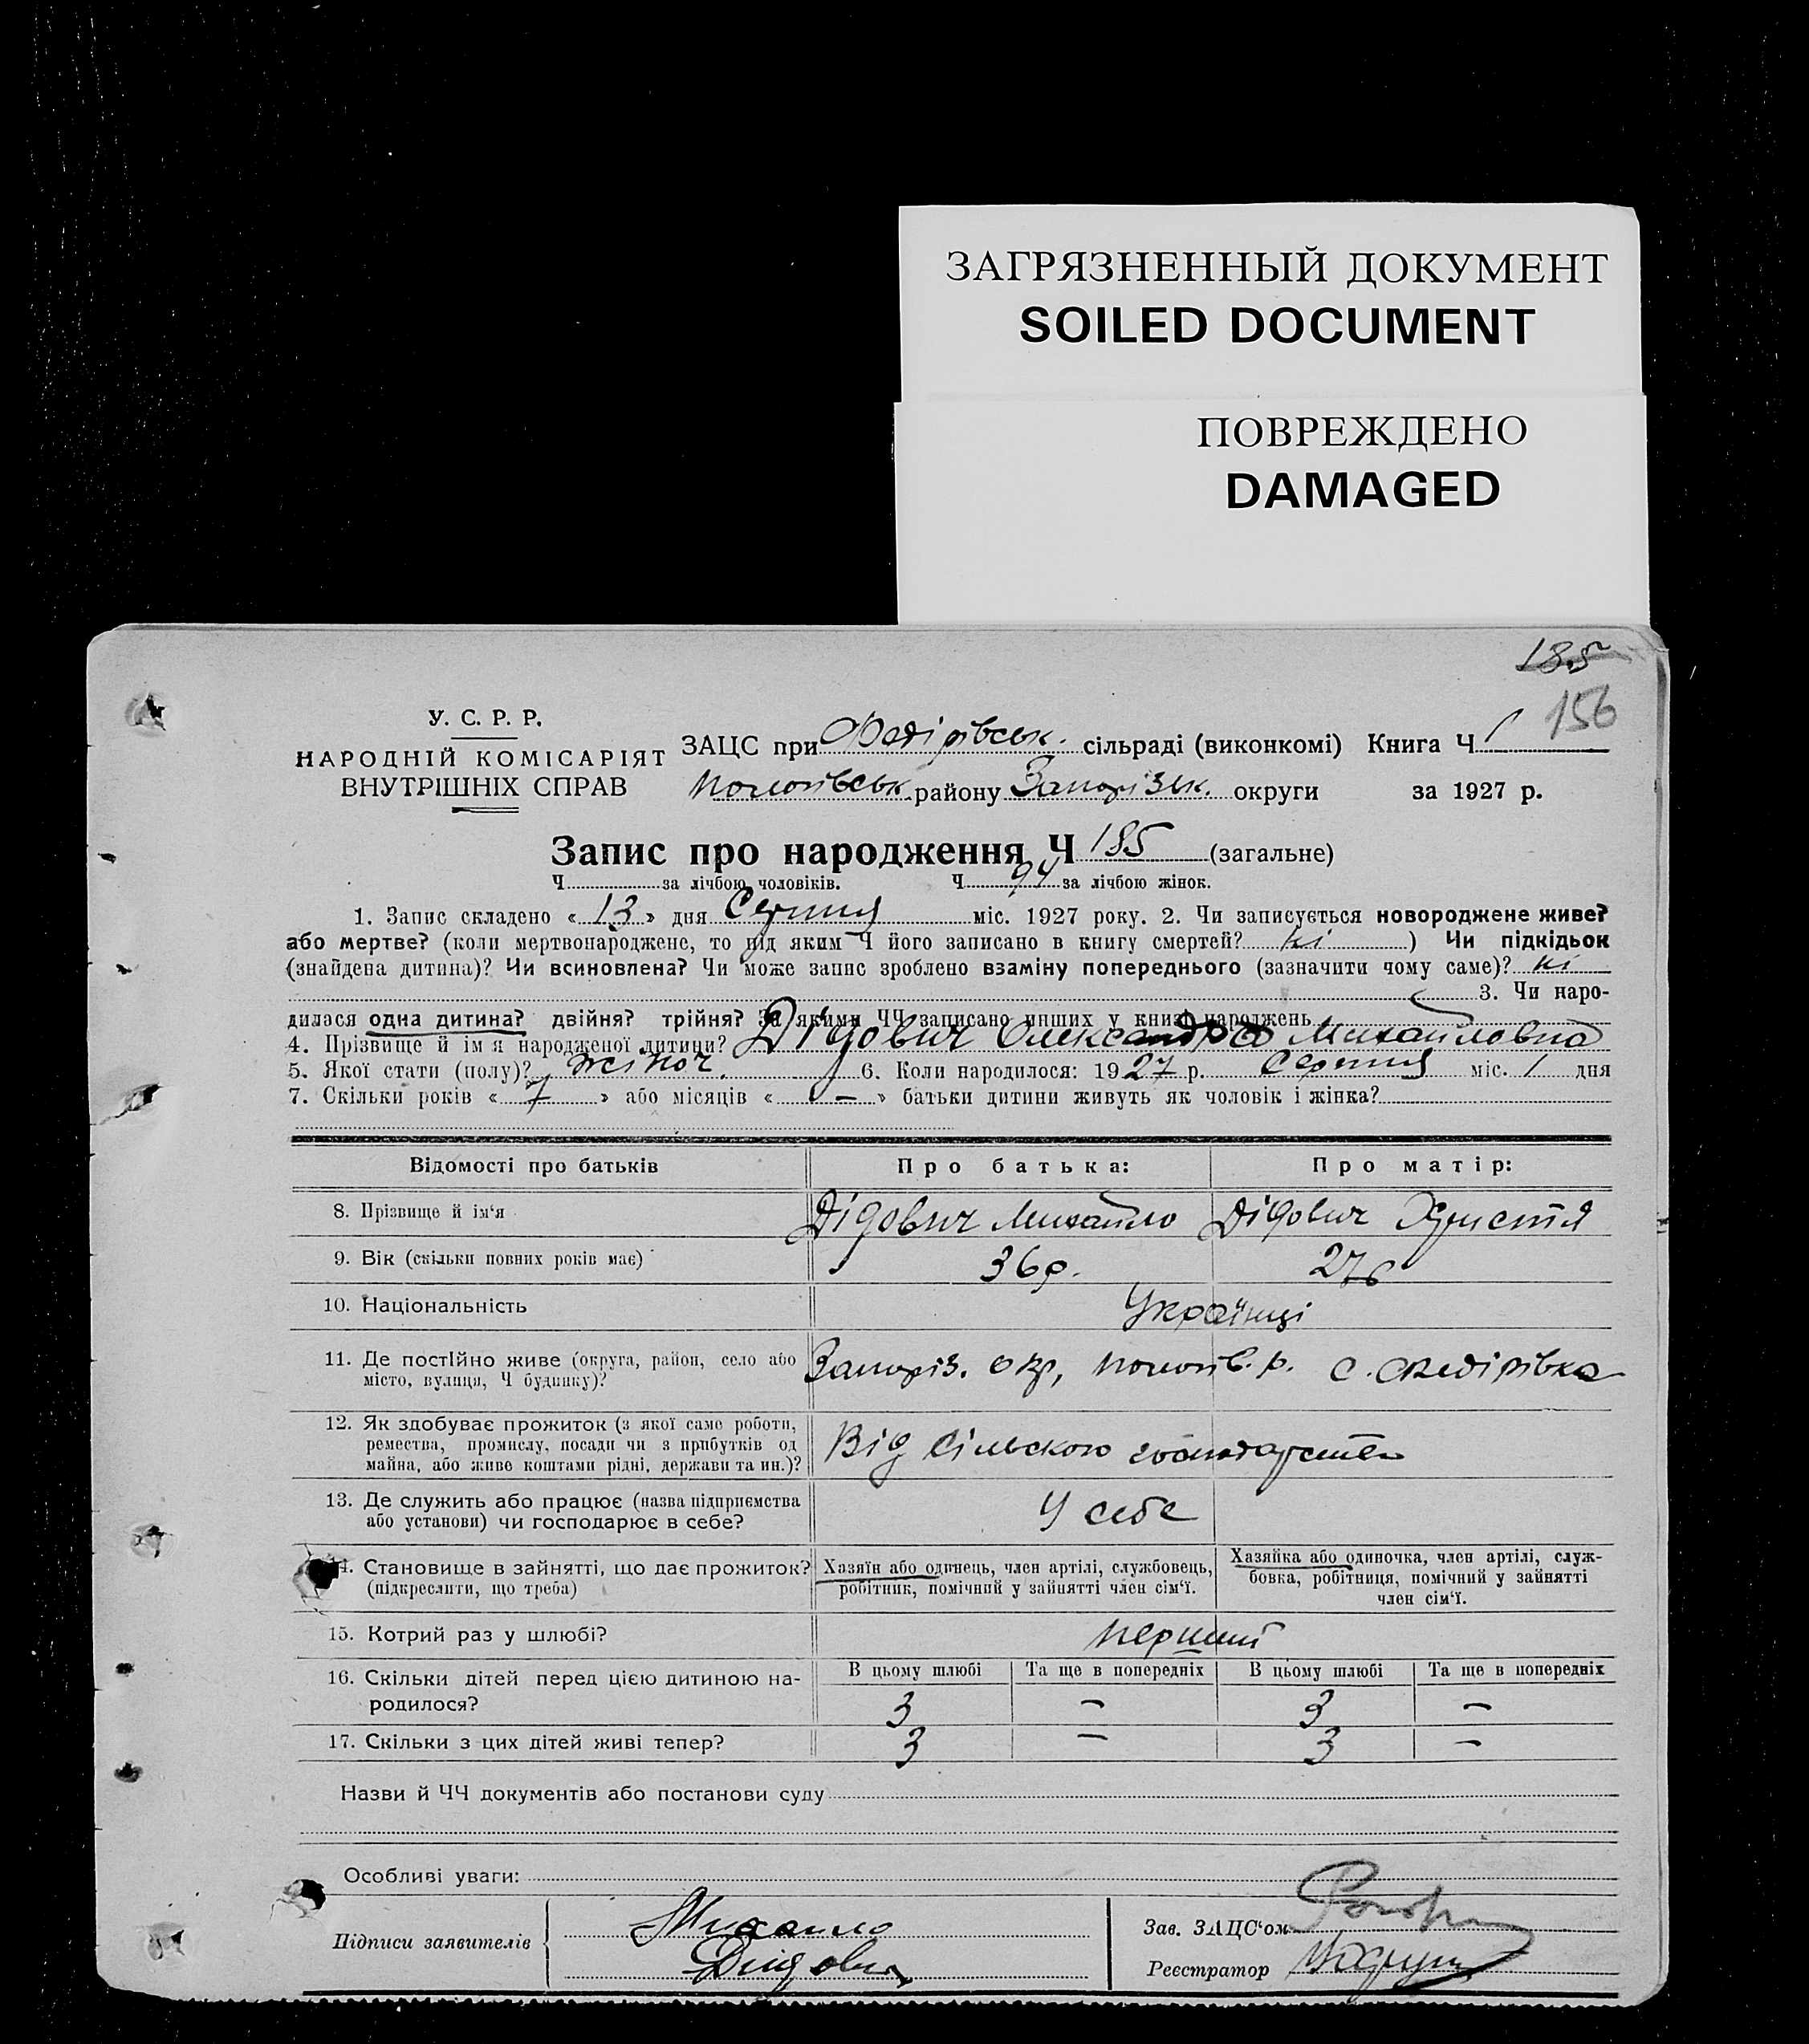 ЗАГРЯЗНЕННЫЙ ДОКУМЕНТ
SOILED DOCUMENT
ПОВРЕЖДЕНО
DAMAGED
185
156
У. С. Р. Р.
НАРОДНІЙ КОМІСАРІЯТ
ВНУТРІШНІХ СПРАВ
ЗАЦС при Федірівськ. сільраді (виконкомі) Книга Ч 1
Пологівськ. району Запорізьк. округи за 1927 р.
Запис про народження Ч 185 (загальне)
Ч за лічбою чоловіків. Ч 94 за лічбою жінок.
1. Запис складено « 13 » дня Серпня міс. 1927 року. 2. Чи записується новороджене живе?
або мертве? (коли мертвонароджене, то під яким Ч його записано в книгу смертей? ні ) Чи підкідьок
(знайдена дитина)? Чи всиновлена? Чи може запис зроблено взаміну попереднього (зазначити чому саме)? ні
3. Чи наро-
дилася одна дитина? двійня? трійня? За якими ЧЧ записано инших у книзі народжень
4. Прізвище й ім'я народженої дитини? Дідович Олександра Михайловна
5. Якої стати (полу)? жіноч. 6. Коли народилося: 1927 р. Серпня міс. 1 дня
7. Скільки років « 7 » або місяців « — » батьки дитини живуть як чоловік і жінка?
Відомості про батьків Про батька: Про матір:
8. Прізвище й ім'я Дідович Михайло Дідович Христя
9. Вік (скільки повних років має) 36 р. 27 р
10. Національність Українці
11. Де постійно живе (округа, район, село або
місто, вулиця, Ч будинку)? Запоріз. окр, Пологів. р. с. Федірівка
12. Як здобуває прожиток (з якої саме роботи,
ремества, промислу, посади чи з прибутків од
майна, або живе коштами рідні, держави та ин.)? Від сільского господарства
13. Де служить або працює (назва підприємства
або установи) чи господарює в себе? У себе
4. Становище в зайнятті, що дає прожиток?
(підкреслити, що треба)
Хазяїн або одинець, член артілі, службовець,
робітник, помічний у зайнятті член сім'ї.
Хазяйка або одиночка, член артілі, служ-
бовка, робітниця, помічний у зайнятті
член сім'ї.
15. Котрий раз у шлюбі? перший
В цьому шлюбі Та ще в попередніх В цьому шлюбі Та ще в попередніх
16. Скільки дітей перед цією дитиною на-
родилося? 3 — 3 —
17. Скільки з цих дітей живі тепер? 3 — 3 —
Назви й ЧЧ документів або постанови суду
Особливі уваги:
Підписи заявителів Михаило
Дидович
Зав. ЗАЦС'ом
Реєстратор